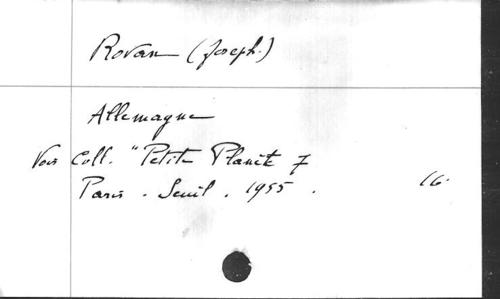 Rovan (Joseph.)
Allemagne
Voir Coll. "Petite Planète 7
Paris. Seuil. 1955. 16°